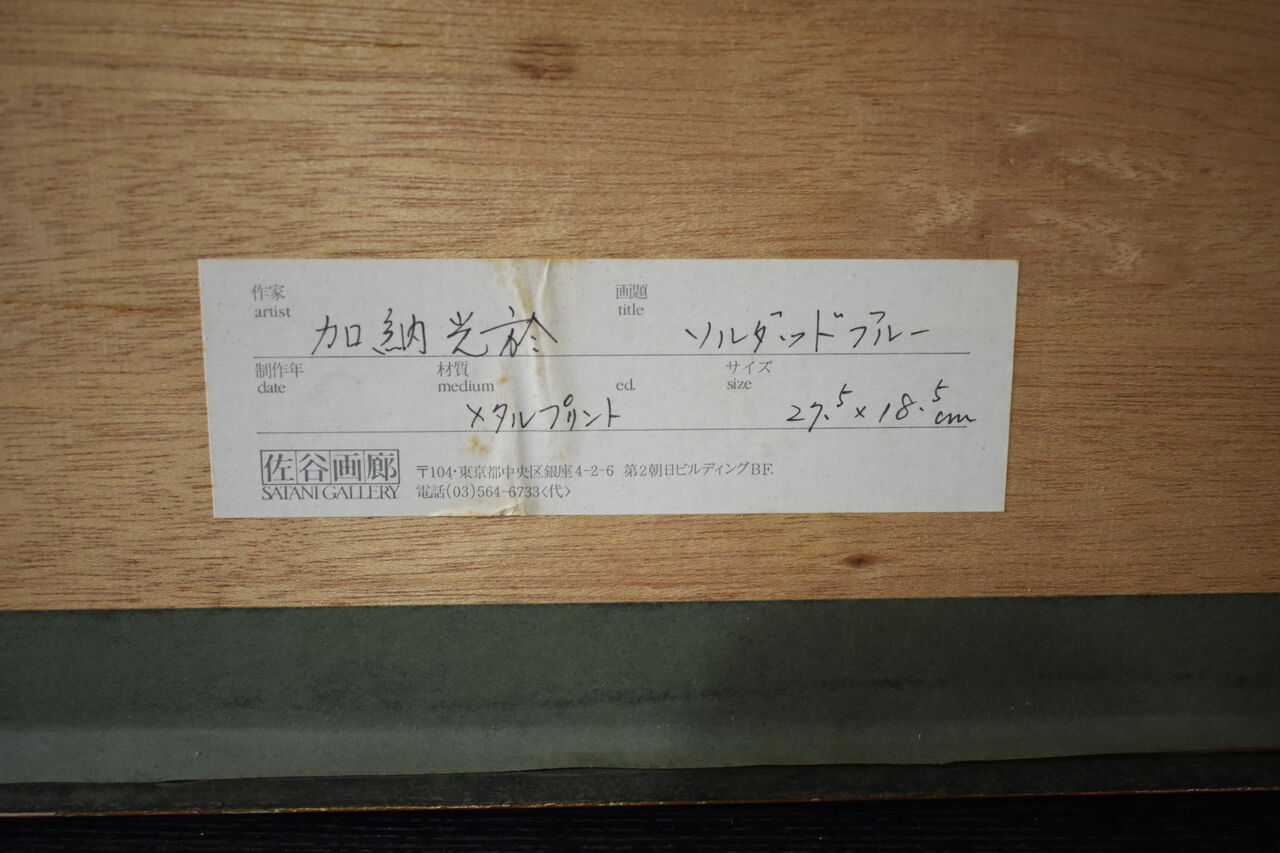 作家 画題
artist title
加納光於 ソルダッドブルー
制作年 材質 サイズ
date medium ed. size
メタルプリント 27.5×18.5cm
佐谷画廊 〒104・東京都中央区銀座4-2-6 第2朝日ビルディングB.F.
SATANI GALLERY 電話(03)564-6733<代>